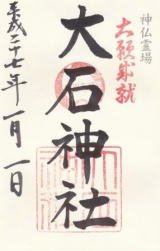 神仏霊場
大願成就
大石神社
平成二十七年一月一日